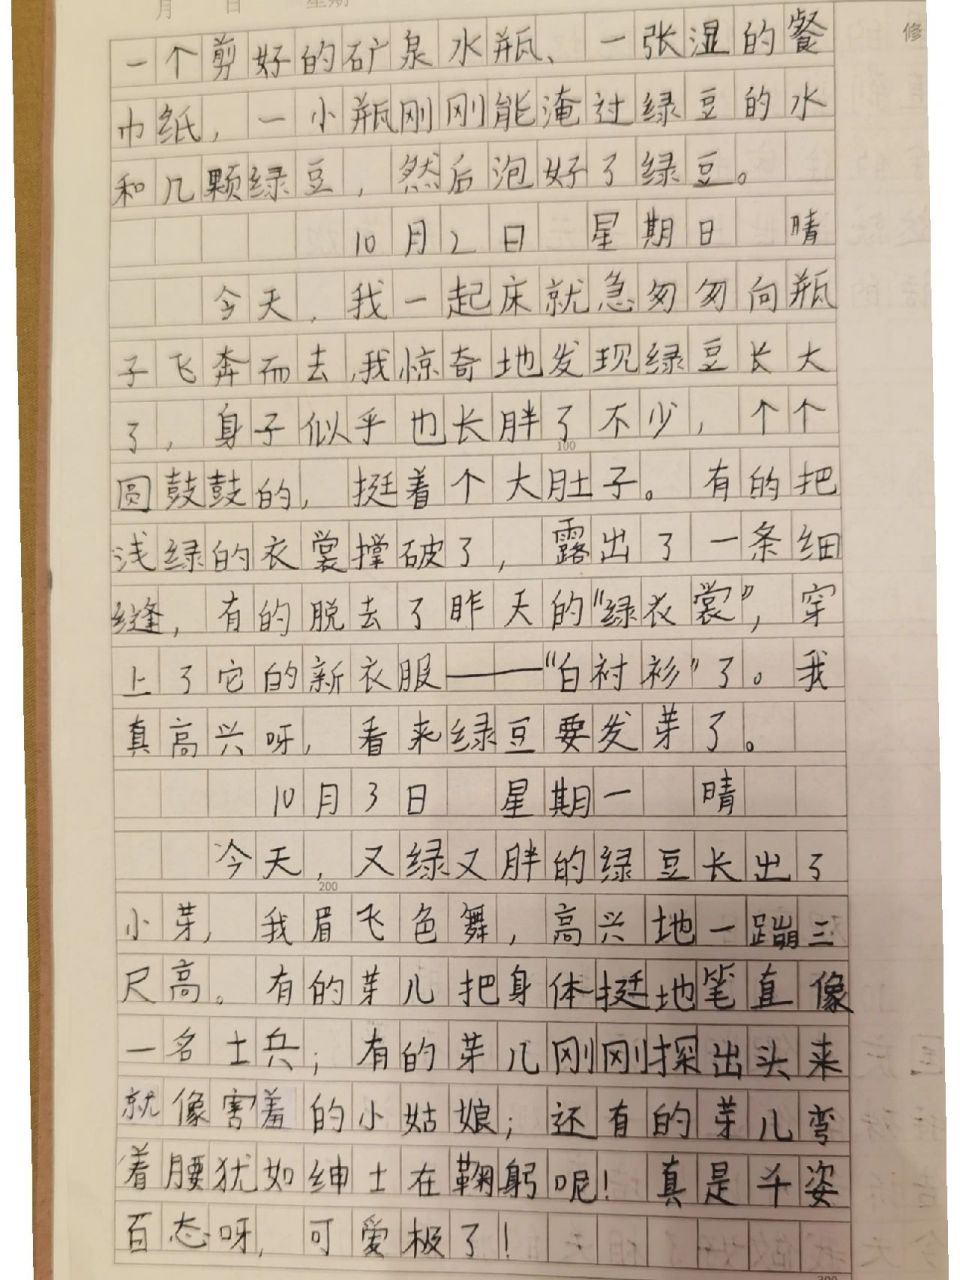 月 日 星期
修
一个剪好的矿泉水瓶、一张湿的餐
巾纸，一小瓶刚刚能淹过绿豆的水
和几颗绿豆，然后泡好了绿豆。
10月2日 星期日 晴
今天，我一起床就急匆匆向瓶
子飞奔而去，我惊奇地发现绿豆长大
了，身子似乎也长胖了不少，个个
100
圆鼓鼓的，挺着个大肚子。有的把
浅绿的衣裳撑破了，露出了一条细
缝，有的脱去了昨天的“绿衣裳”，穿
上了它的新衣服——“白衬衫”了。我
真高兴呀，看来绿豆要发芽了。
10月3日 星期一 晴
今天，又绿又胖的绿豆长出了
200
小芽，我眉飞色舞，高兴地一蹦三
尺高。有的芽儿把身体挺地笔直像
一名士兵；有的芽儿刚刚探出头来
就像害羞的小姑娘；还有的芽儿弯
着腰犹如绅士在鞠躬呢！真是千姿
百态呀，可爱极了！
300